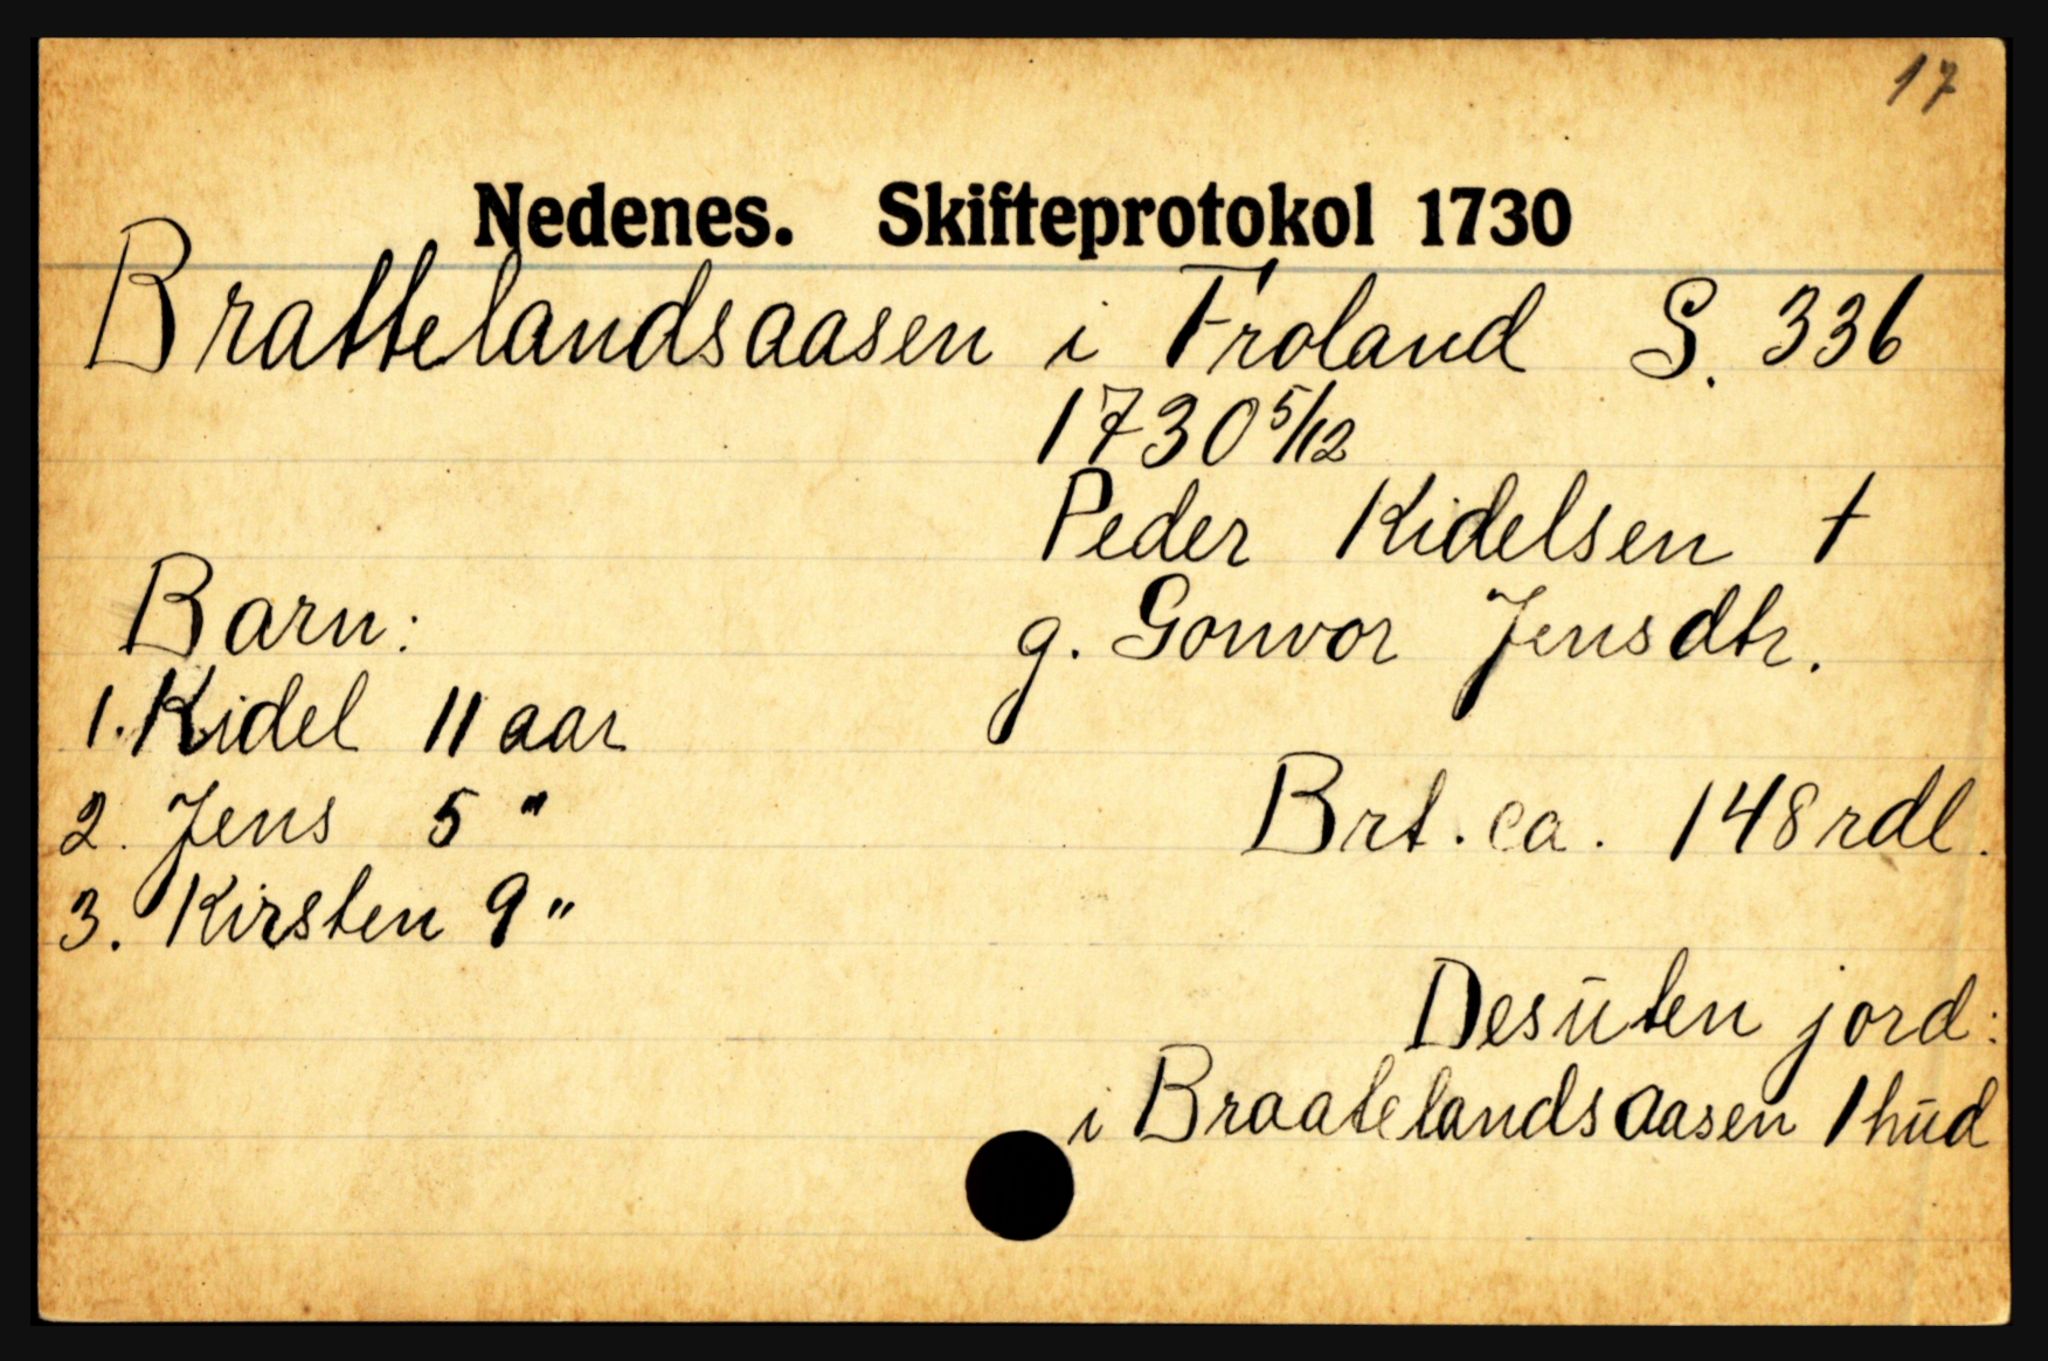 17
Nedenes. Skifteprotokol 1730
Brattelandsaasen i Froland S. 336
1730 5/12
Peder Kidelsen †
g. Gonvor Jensdtr.
Barn:
1. Kidel 11 aar
2. Jens 5 "
3. Kirsten 9 "
Brt. ca. 148 rdl.
Desuten jord:
i Braatelandsaasen 1 hud